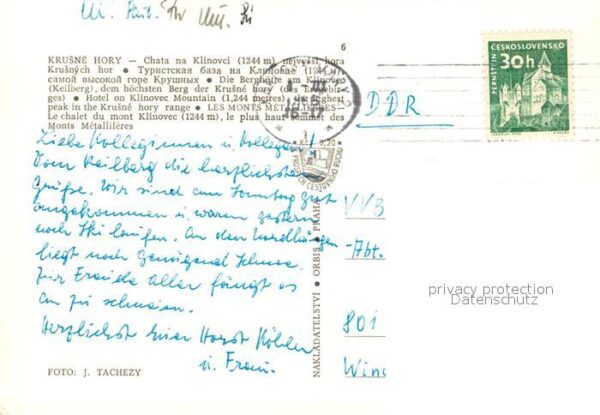 6
KRUŠNÉ HORY — Chata na Klínovci (1244 m) nejvyšší hory
Krušných hor • Туристская база на Клиновце (1244
самой высокой горе Крушных • Die Berghütte am Klínovec
(Keilberg), dem höchsten Berg der Krušné hory (des Erzgebir-
ges) • Hotel on Klínovec Mountain (1,244 metres) the highest
peak in the Krušné hory range • LES MONTS MÉTALLIFÈRES
Le chalet du mont Klínovec (1244 m), le plus haut sommet des
Monts Métallifères
ČESKOSLOVENSKO
30h
PERNŠTEJN
DDR
Liebe Kolleginnen u. Kollegen!
Vom Keilberg die herzlichsten
Grüße. Wir sind am Sonntag gut
angekommen u. waren gestern
noch Ski laufen. An den Nordhängen
liegt noch genügend Schnee.
Zur Freude aller fängt es
an zu schneien.
Herzlichst Euer Horst Köhler
u. Frau.
Kčs 0,20
NAKLADATELSTVÍ • ORBIS • PRAHA
VVB
-Abt.
801
privacy protection
Datenschutz
FOTO: J. TACHEZY